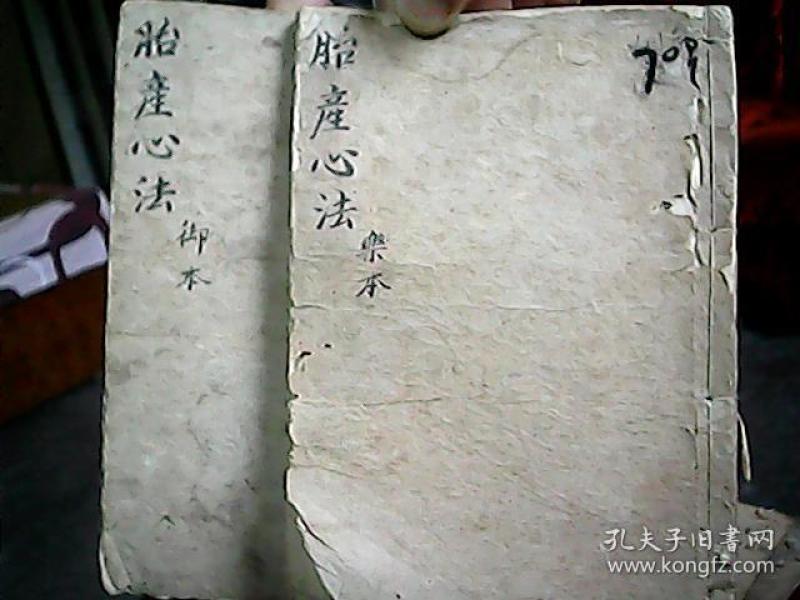 胎產心法
御本
胎產心法
樂本
孔夫子旧書网
www.kongfz.com